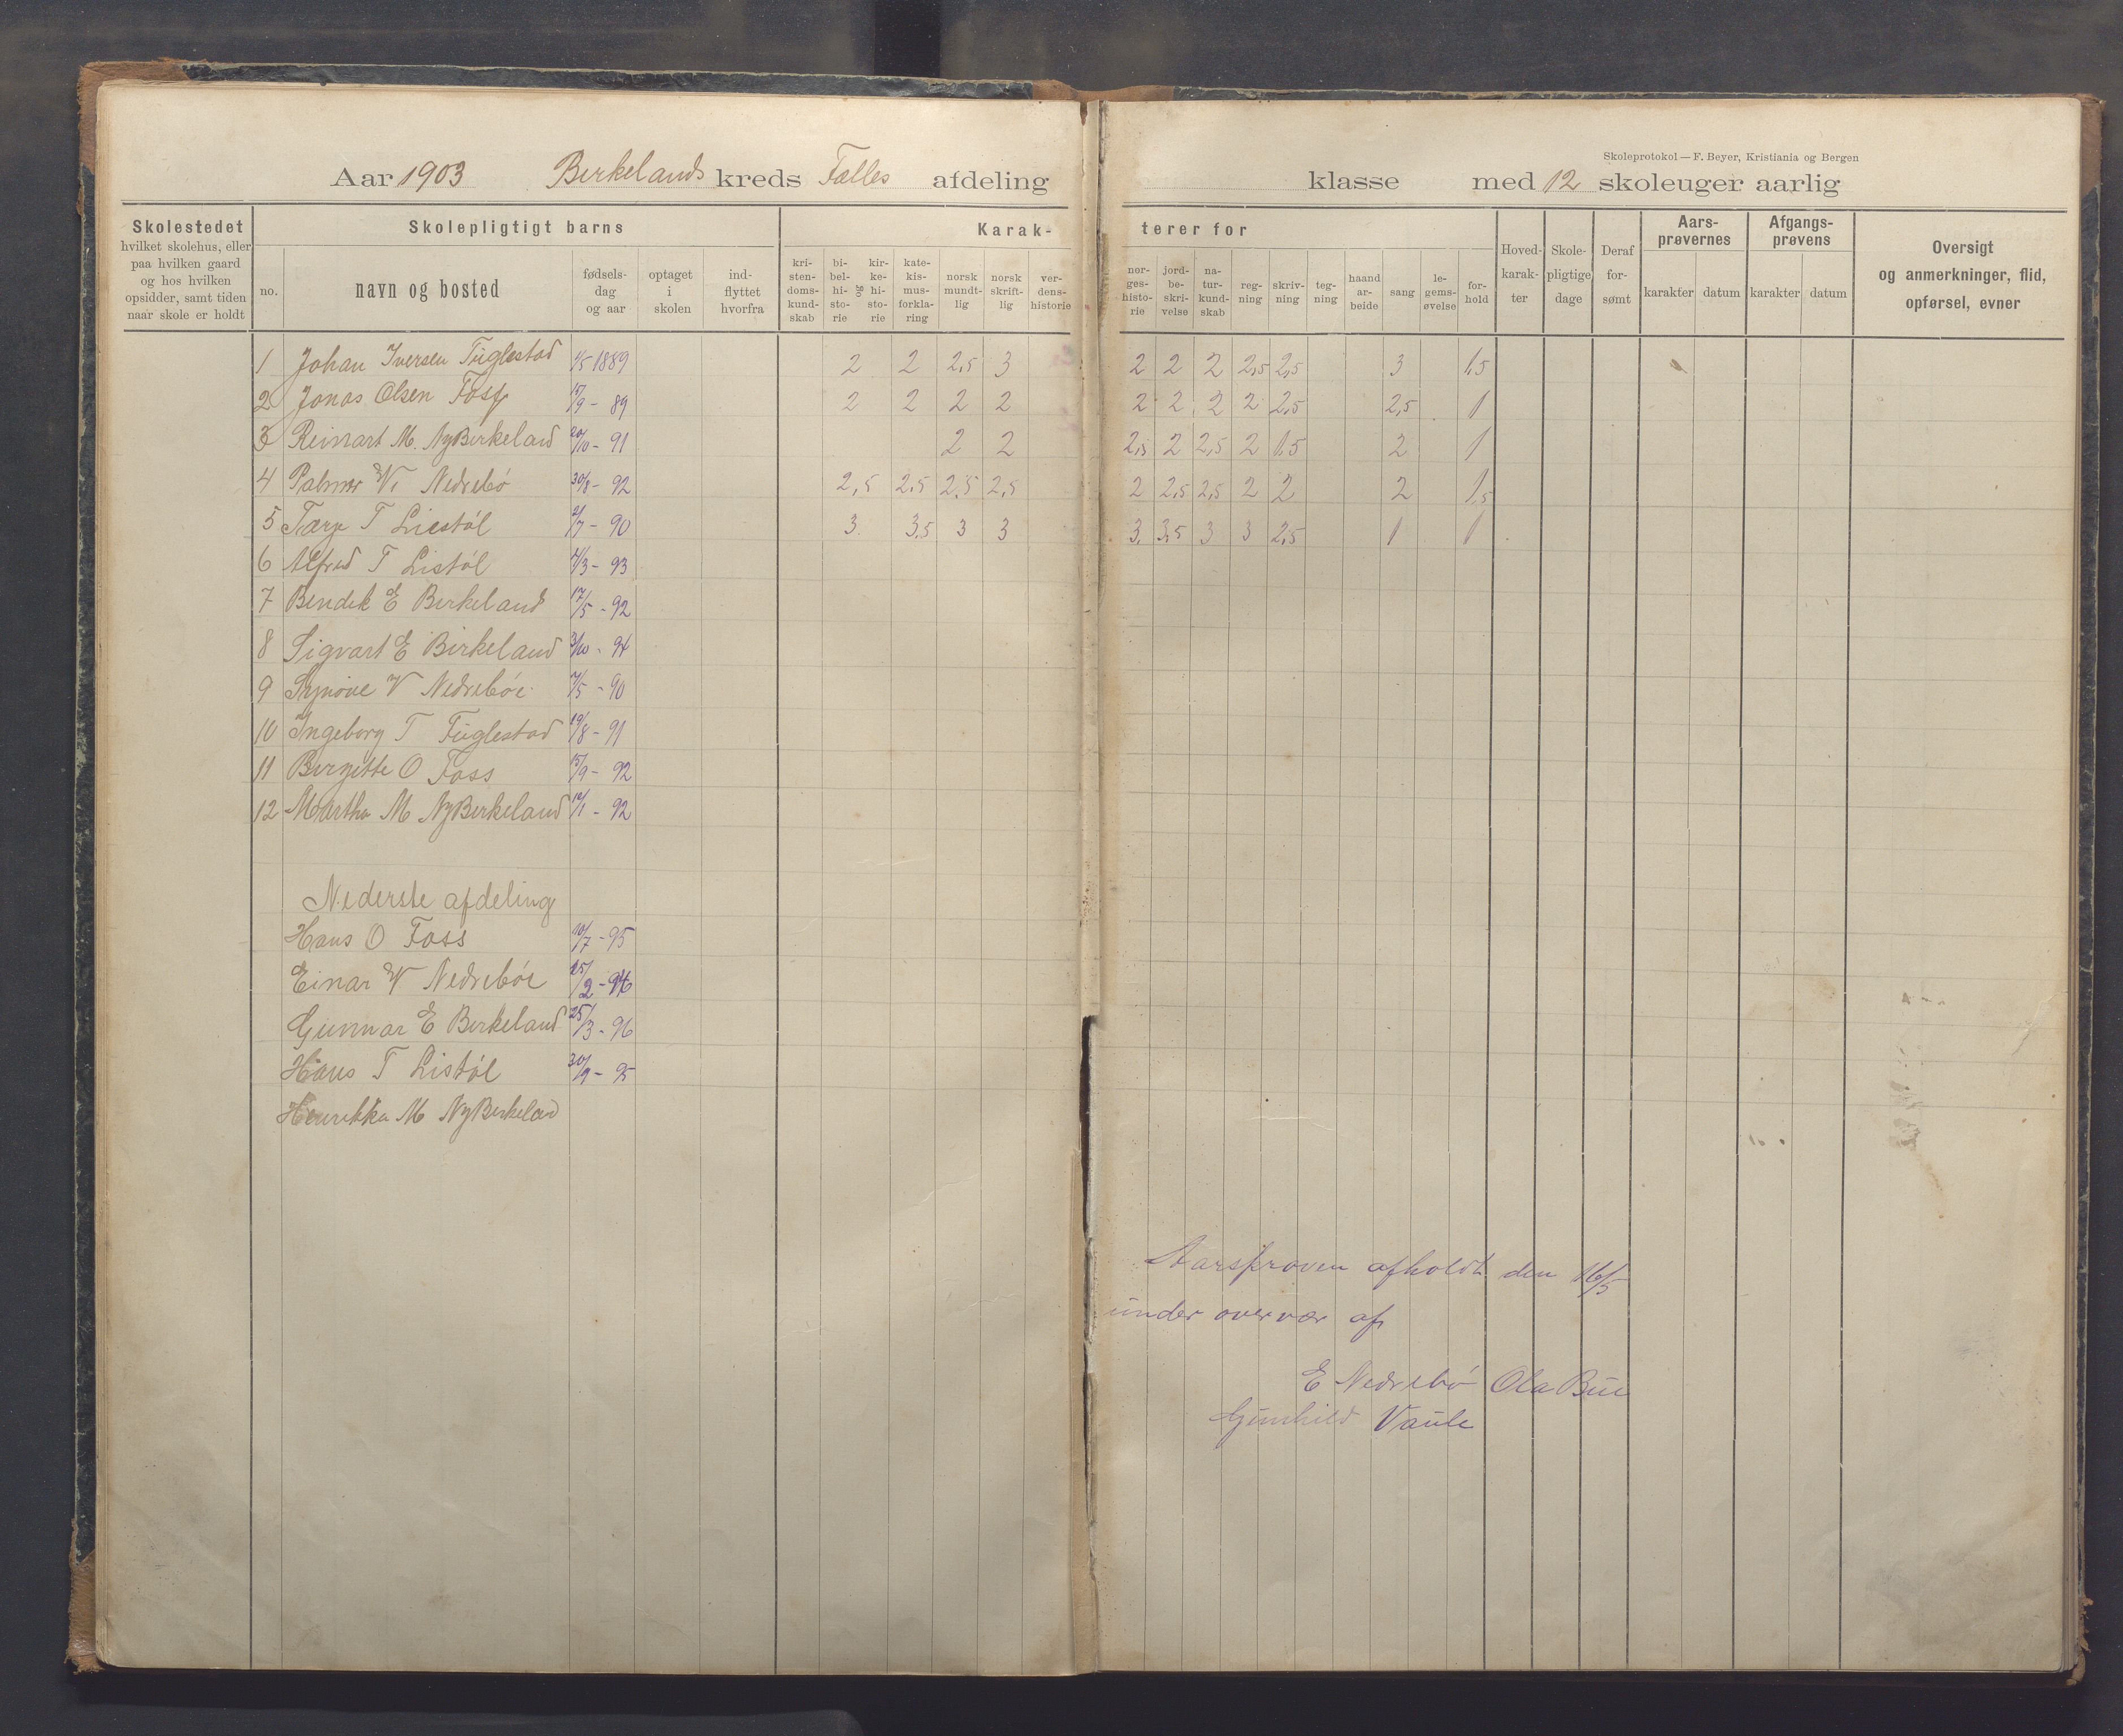 Skoleprotokol — F. Beyer, Kristiania og Bergen
Aar 1903 Birkelands kreds Fælles afdeling klasse med 12 skoleuger aarlig
Skolestedet hvilket skolehus, eller paa hvilken gaard og hos hvilken opsidder, samt tiden naar skole er holdt
Skolepligtigt barns
no. navn og bosted fødsels-dag og aar optaget i skolen ind-flyttet hvorfra
Karak- terer for
kri-sten-doms-kund-skab bi-bel-hi-sto-rie og kir-ke-hi-sto-rie kate-kis-mus-forkla-ring norsk mundt-lig norsk skrift-lig ver-dens-historie nor-ges-histo-rie jord-be-skri-velse na-tur-kund-skab reg-ning skriv-ning teg-ning haand ar-beide sang le-gems-øvelse for-hold
Hoved-karak-ter Skole-pligtige dage Deraf for-sømt
Aars-prøvernes karakter datum
Afgangs-prøvens karakter datum
Oversigt og anmerkninger, flid, opførsel, evner
1 Johan Iversen Fuglestad 1889 2 2 2,5 3 2 2 2 2,5 2,5 3 1,5
2 Jonas Olsen Foss 15/9 - 89 2 2 2 2 2 2 2 2 2,5 2,5 1
3 Reinart M. NyBirkeland 20/10 - 91 2 2 2,5 2 2,5 2 1,5 2 1
4 Palmer V. Nedrebø 30/8 - 92 2,5 2,5 2,5 2,5 2 2,5 2,5 2 2 2 1,5
5 T Liestøl 2/7 - 90 3 3,5 3 3 3 3,5 3 3 2,5 1 1
6 Alfred T Listøl - 93
7 Bendik E Birkeland 17/5 - 92
8 Sigvart E Birkeland 3/10 - 94
9 Synøve V Nedrebøe 7/5 - 90
10 Ingeborg T Fuglestad 19/8 - 91
11 Birgitte O Foss 15/9 - 92
12 Martha M NyBirkeland - 92
Nederste afdeling
Hans O Foss 10/7 - 95
Einar V Nedrebøe 25/2 -
Gunnar E Birkeland 25/3 - 96
Hans T Listøl 30/9 - 95
Henrikka M NyBirkeland
Aarsprøven afholdt den 16/5
under overvær af
E Nedrebø Ola Bue
Gunhild Vaule